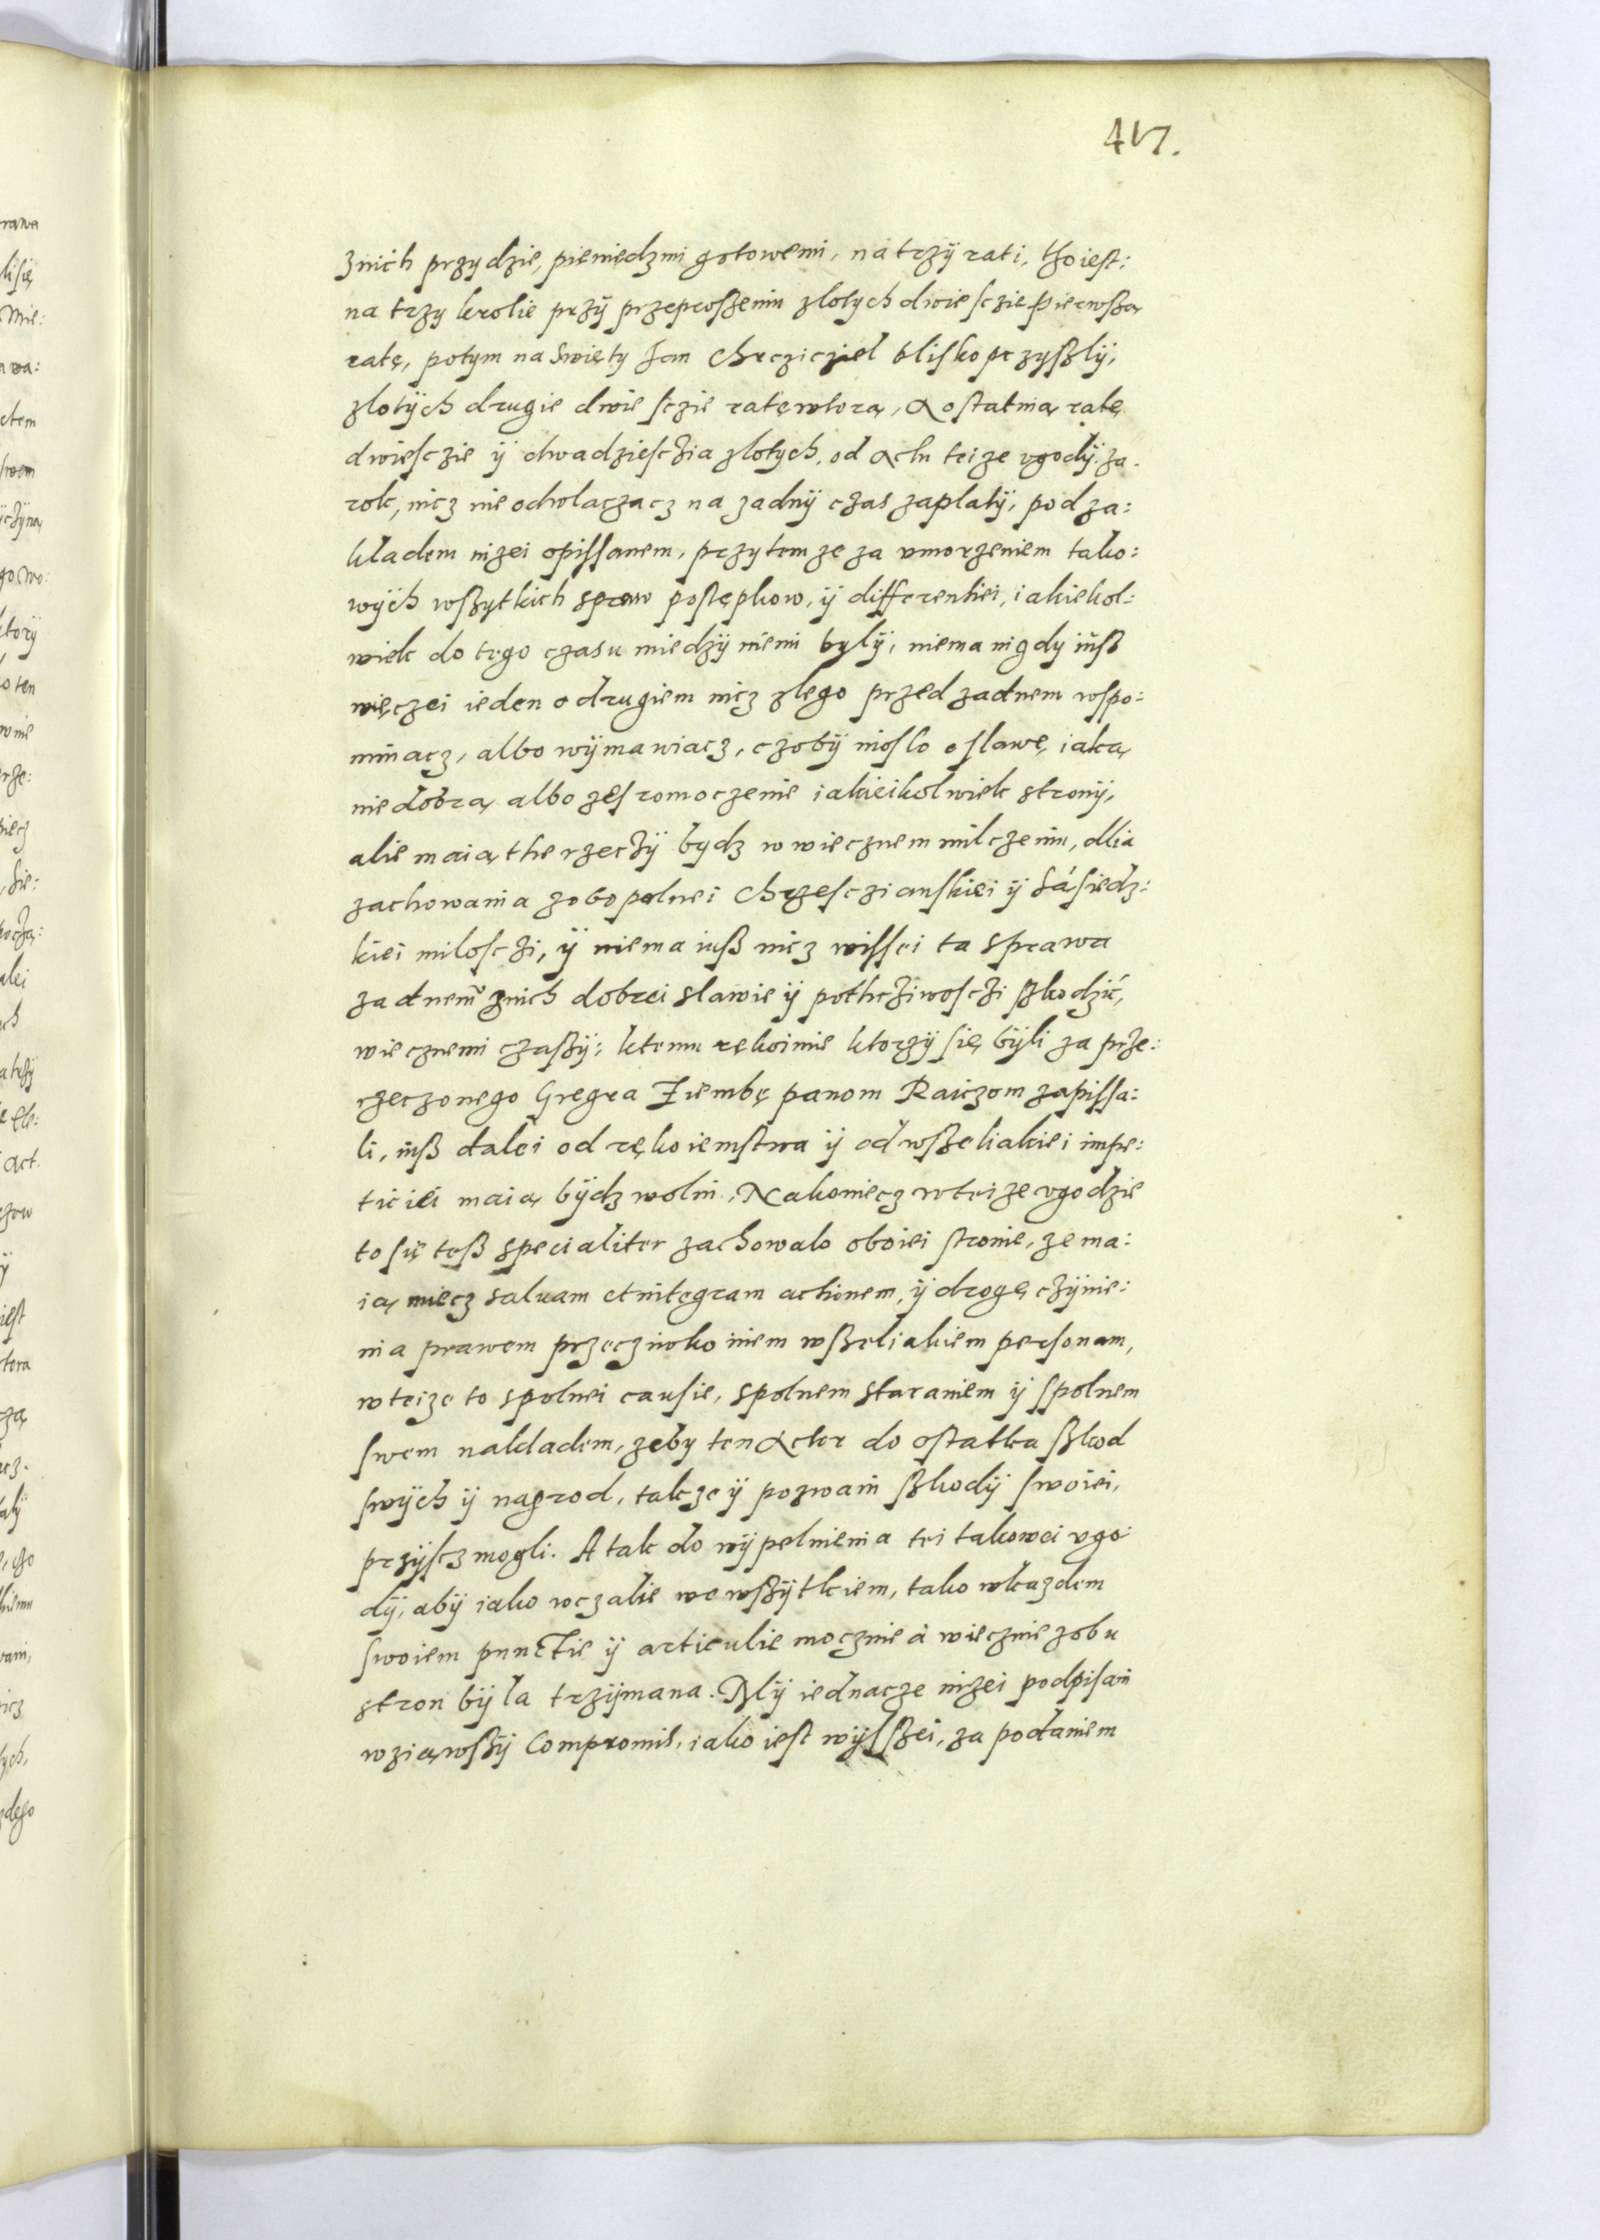 417.
znich przydzie, pieniedzmi gotowemi, na trzÿ rati, tho iest:
na trzy krolie przÿ przeproszeniu zlotych dwiesczie pierwsza
ratę, potym na Swięty Jan Chrzicziel blisko przyszlÿ,
zlotÿch drugie dwiesczie ratę wtorą, A ostatnią ratę
dwiesczie ÿ dwadziesczia zlotych, od Actu teize vgodÿ za
rok, nicz nie odwlaczacz na zadnÿ czas zaplatÿ, pod za:
kladem nizei opissanem, przytem ze za vmorzeniem tako:
wÿch wszytkich spraw postępkow, ÿ differentiei, iakiekol:
wiek do tego czasu miedzÿ niemi bylÿ, niema nigdy iusz
więczei ieden o drugiem nicz zlego przed zadnem wspo:
minacz, albo wÿmawiacz, czobÿ nioslo oslawę iaką
niedobrą albo zesromoczenie iakieikolwiek stronÿ,
alie maią the rzeczÿ bydz w wiecznem milczeniu, dlia
zachowania zobopolnei Chrzesczianskiei ÿ sásiedz:
kiei miloschi, ÿ niema iusz nicz wissei ta sprawa
zadnemu znich dobrei slawie ÿ pothcziwosczi szkodzić,
wiecznemi czaszÿ; ktemu rękoimie ktorzÿ się bÿli za prze:
rzeczonego Gregra Ziembę panom Raiczom zapissa:
li, iusz dalei od rękoiemstwa ÿ od wszeliakiei impe:
ticiei maią bÿdz wolni. Nakoniecz wteize vgodzie
to się tesz specialiter zachowalo oboiei stronie, ze ma:
ią miecz saluam et integram actionem, ÿ drogę czÿnie:
nia prawem przeczinoko iniem wszeliakiem personam,
wteize to spolnei causie, spolnem staraniem ÿ spolnem
swem nakladem, zeby ten Actor do ostatka szkod
swÿch ÿ nagrod, takze ÿ pozwani szkodÿ swoiei,
przÿscz mogli. A tak do wÿpelnienia tei takowei vgo:
dÿ, abÿ iako wczalie we wszÿtkiem, tako wkazdem
swoiem punctie ÿ articulie mocznie à wiecznie z obu
stron bÿla trzÿmana. Mÿ iednacze nizei podpisani
wziąwszÿ Compromis, iako iest wÿsszei, za podaniem